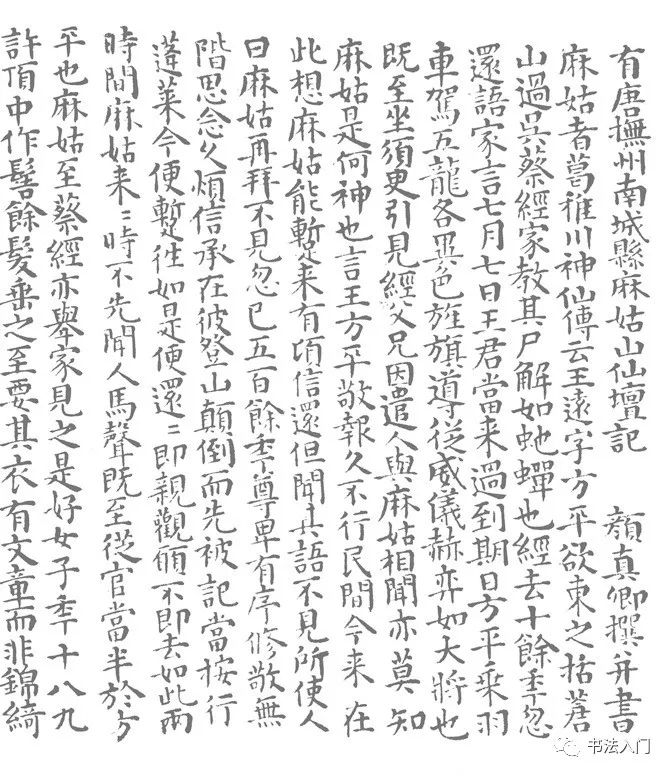 有唐撫州南城縣麻姑山仙壇記 顏真卿撰并書
麻姑者葛稚川神仙傳云王遠字方平欲東之括蒼
山過吳蔡經家教其尸解如虵蟬也經去十餘年忽
還語家言七月七日王君當来過到期日方平乗羽
車駕五龍各異色旌旗導従威儀赫弈如大將也
既至坐須臾引見經父兄因遣人與麻姑相聞亦莫知
麻姑是何神也言王方平敬報久不行民間今来在
此想麻姑能蹔来有頃信還但聞其語不見所使人
曰麻姑再拜不見忽已五百餘年尊卑有序修敬無
階思念久煩信承在彼登山顛倒而先被記當按行
蓬萊今便蹔往如是便還〻即親觀願不即去如此兩
時間麻姑来〻時不先聞人馬聲既至從官當半於方
平也麻姑至蔡經亦舉家見之是好女子年十八九
許頂中作髻餘髮垂之至要其衣有文章而非錦綺
书法入门